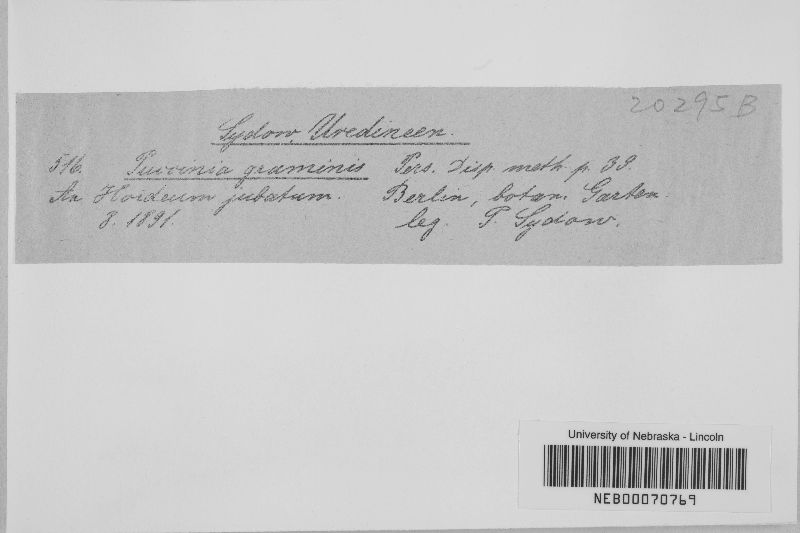 20295B
Sydow, Uredineen.
516. Puccinia graminis Pers. Disp. meth. p. 39.
An Hordeum jubatum. Berlin, botan. Garten.
8. 1891. leg. P. Sydow.
University of Nebraska - Lincoln
NEB00070769